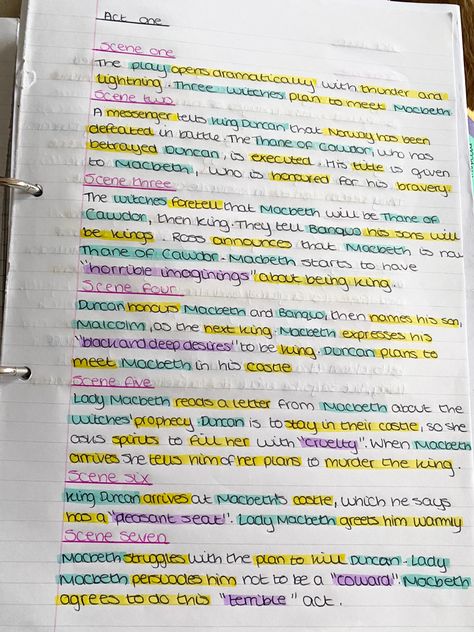 Act one
Scene one
The play opens dramatically with thunder and
lightning. Three witches plan to meet Macbeth
Scene two
A messenger tells King Duncan that Norway has been
defeated in battle. The Thane of Cawdor, who has
betrayed Duncan, is executed. His title is given
to Macbeth, who is honoured for his bravery
Scene three
The witches foretell that Macbeth will be Thane of
Cawdor, then King. They tell Banquo his sons will
be kings. Ross announces that Macbeth is now
Thane of Cawdor. Macbeth starts to have
"horrible imaginings" about being king.
Scene four
Duncan honours Macbeth and Banquo, then names his son,
Malcolm, as the next king. Macbeth expresses his
"black and deep desires" to be king. Duncan plans to
meet Macbeth in his castle
Scene five
Lady Macbeth reads a letter from Macbeth about the
witches' prophecy. Duncan is to stay in their castle, so she
asks spirits to fill her with "cruelty". When Macbeth
arrives she tells him of her plans to murder the king.
Scene six
King Duncan arrives at Macbeth's castle, which he says
has a "pleasant seat". Lady Macbeth greets him warmly
Scene seven
Macbeth struggles with the plan to kill Duncan. Lady
Macbeth persuades him not to be a "coward". Macbeth
agrees to do this "terrible" act.